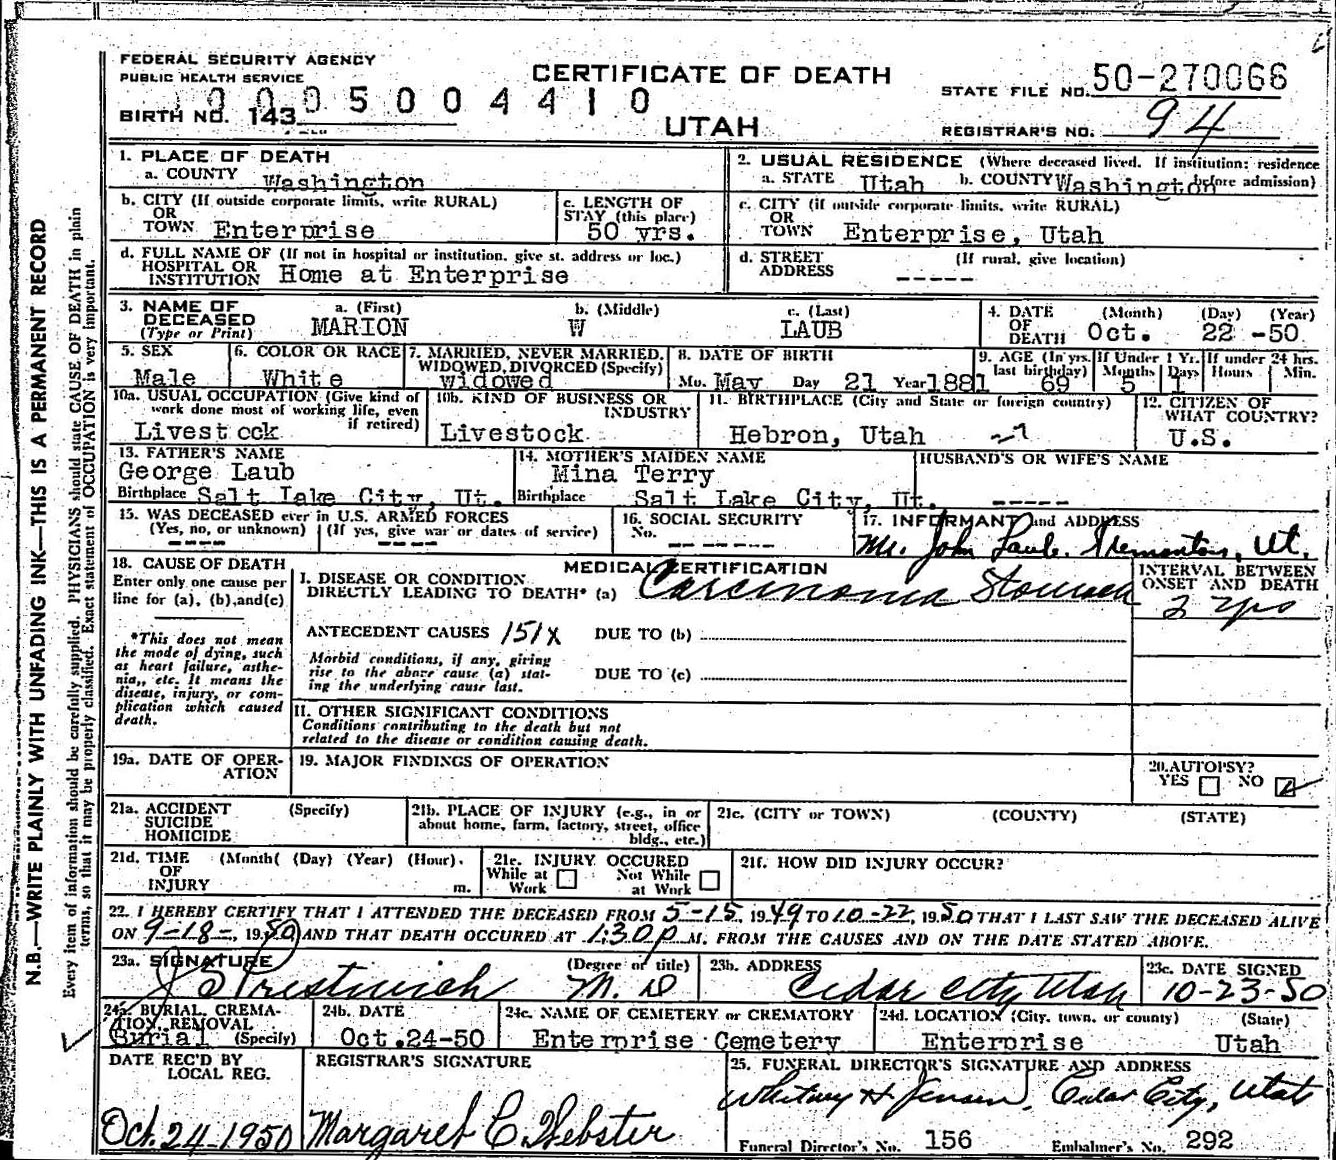 FEDERAL SECURITY AGENCY
PUBLIC HEALTH SERVICE
CERTIFICATE OF DEATH
UTAH
STATE FILE NO. 50-270066
1 0 0 0 5 0 0 4 4 1 0
BIRTH NO. 143
REGISTRAR'S NO. 94
1. PLACE OF DEATH
a. COUNTY Washington
2. USUAL RESIDENCE (Where deceased lived. If institution: residence before admission)
a. STATE Utah b. COUNTY Washington
b. CITY (If outside corporate limits, write RURAL)
OR
TOWN Enterprise
c. LENGTH OF
STAY (this place)
50 yrs.
c. CITY (if outside corporate limits, write RURAL)
OR
TOWN Enterprise, Utah
d. FULL NAME OF (If not in hospital or institution, give st. address or loc.)
HOSPITAL OR
INSTITUTION Home at Enterprise
d. STREET (If rural, give location)
ADDRESS -----
3. NAME OF
DECEASED
(Type or Print)
a. (First) b. (Middle) c. (Last)
MARION W LAUB
4. DATE (Month) (Day) (Year)
OF
DEATH Oct. 22 -50
5. SEX
Male
6. COLOR OR RACE
White
7. MARRIED, NEVER MARRIED,
WIDOWED, DIVORCED (Specify)
widowed
8. DATE OF BIRTH
Mo. May Day 21 Year 1881
9. AGE (In yrs. last birthday) 69
If Under 1 Yr. Months 5 Days 1
If under 24 hrs. Hours Min.
10a. USUAL OCCUPATION (Give kind of
work done most of working life, even
if retired)
Livestock
10b. KIND OF BUSINESS OR
INDUSTRY
Livestock
11. BIRTHPLACE (City and State or foreign country)
Hebron, Utah
12. CITIZEN OF
WHAT COUNTRY?
U.S.
13. FATHER'S NAME
George Laub
Birthplace Salt Lake City, Ut.
14. MOTHER'S MAIDEN NAME
Mina Terry
Birthplace Salt Lake City, Ut.
HUSBAND'S OR WIFE'S NAME
-----
15. WAS DECEASED ever in U.S. ARMED FORCES
(Yes, no, or unknown) (If yes, give war or dates of service)
---- ----
16. SOCIAL SECURITY
No. ------
17. INFORMANT and ADDRESS
Mr. John Laub. Tremonton, Ut.
18. CAUSE OF DEATH
Enter only one cause per
line for (a), (b), and (c)
*This does not mean
the mode of dying, such
as heart failure, asthe-
nia,, etc. It means the
disease, injury, or com-
plication which caused
death.
MEDICAL CERTIFICATION
I. DISEASE OR CONDITION
DIRECTLY LEADING TO DEATH* (a) Carcinoma Stomach
INTERVAL BETWEEN
ONSET AND DEATH
2 yrs
ANTECEDENT CAUSES 151X DUE TO (b)
Morbid conditions, if any, giving
rise to the above cause (a) stat-
ing the underlying cause last.
DUE TO (c)
II. OTHER SIGNIFICANT CONDITIONS
Conditions contributing to the death but not
related to the disease or condition causing death.
19a. DATE OF OPER-
ATION
19. MAJOR FINDINGS OF OPERATION
20. AUTOPSY?
YES NO
21a. ACCIDENT (Specify)
SUICIDE
HOMICIDE
21b. PLACE OF INJURY (e.g., in or
about home, farm, factory, street, office
bldg., etc.)
21c. (CITY or TOWN) (COUNTY) (STATE)
21d. TIME (Month( (Day) (Year) (Hour).
OF
INJURY m.
21e. INJURY OCCURED
While at Work Not While at Work
21f. HOW DID INJURY OCCUR?
22. I HEREBY CERTIFY THAT I ATTENDED THE DECEASED FROM 5-15, 1949 TO 10-22, 1950 THAT I LAST SAW THE DECEASED ALIVE
ON 9-18-, 1950 AND THAT DEATH OCCURED AT 1:30 p M. FROM THE CAUSES AND ON THE DATE STATED ABOVE.
23a. SIGNATURE (Degree or title)
J S Prestwich M. D
23b. ADDRESS
Cedar City Utah
23c. DATE SIGNED
10-23-50
24a. BURIAL, CREMA-
TION, REMOVAL
Burial (Specify)
24b. DATE
Oct.24-50
24c. NAME OF CEMETERY or CREMATORY
Enterprise Cemetery
24d. LOCATION (City, town, or county) (State)
Enterprise Utah
DATE REC'D BY
LOCAL REG.
Oct. 24-1950
REGISTRAR'S SIGNATURE
Margaret C. Webster
25. FUNERAL DIRECTOR'S SIGNATURE AND ADDRESS
Whitney H Jensen, Cedar City, Utah
Funeral Director's No. 156 Embalmer's No. 292
N.B.—WRITE PLAINLY WITH UNFADING INK—THIS IS A PERMANENT RECORD
Every item of information should be carefully supplied. PHYSICIANS should state CAUSE OF DEATH in plain
terms, so that it may be properly classified. Exact statement of OCCUPATION is very important.